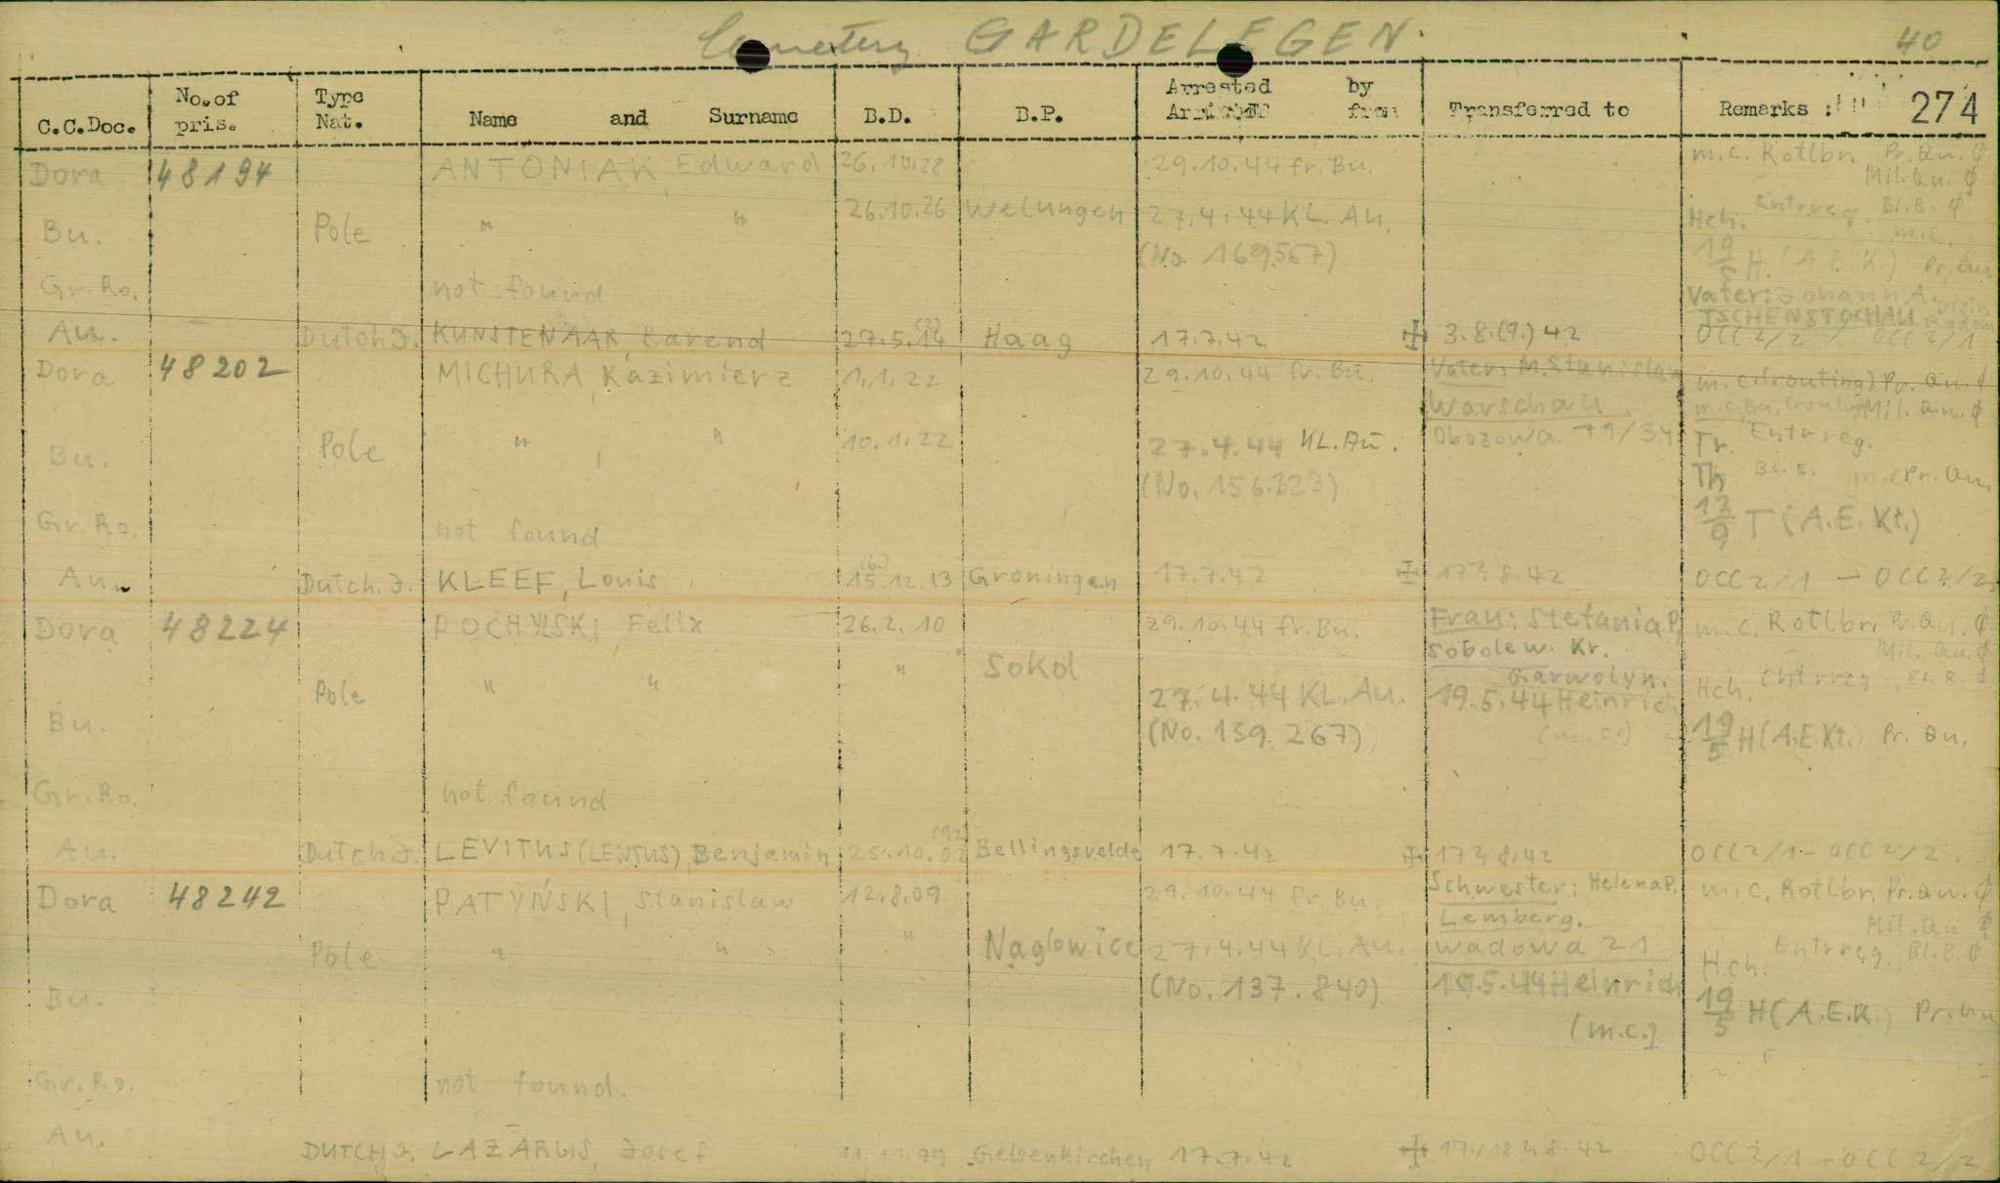 Cemetery GARDELEGEN. 40
C.C.Doc. No. of pris. Type Nat. Name and Surname B.D. B.P. Arrested by Transferred to Remarks : 274
Dora 48194 ANTONIAK, Edward 26.10.28 29.10.44 fr. Bu. m.c. Rotlbr. Pr. Qu. ϕ
Mil. Qu. ϕ
Bu. Pole " " 26.10.26 Welungen 27.4.44 KL. Au. Hch. Entrreg. Bl.B. ϕ
m.c.
(No. 169567) 19/5 H. (A.E.K.) Pr. Qu
Gr. Ro. not found Vater: Johann A.
TSCHENSTOCHAU
Au. Dutch J. KUNSTENAAR, Barend 27.5.14 Haag 17.7.42 ✠ 3.8.(9.) 42 OCC 2/2 OCC 2/1
Dora 48202 MICHURA, Kazimierz 1.1.22 29.10.44 fr. Bu. Vater: M. Stanislaw m.c. (routing) Pr. Qu. ϕ
Warschau. Mil. Qu. ϕ
Bu. Pole " " 10.1.22 27.4.44 KL. Au. Obozowa 79/34 Tr. Entrreg.
(No. 156.323) Th Bl. B. m.c. Pr. Qu.
Gr. Ro. not found 17/9 T (A.E. Kt.)
Au. Dutch. J. KLEEF, Louis 15.12.13 Groningen 17.7.42 ✠ 17?8.42 OCC 2/1 — OCC 2/2
Dora 48224 POCHYLSKI, Felix 26.2.10 29.10.44 fr. Bu. Frau: Stefania P. m.c. Rotlbr. Pr. Qu. ϕ
Sobolew. Kr. Mil. Qu. ϕ
" Sokol Garwolyn. Hch. Entrreg. Bl. B. ϕ
Bu. Pole " " 27.4.44 KL. Au. 19.5.44 Heinrich
(No. 159.267) (m.c.) 19/5 H (A.E. Kt.) Pr. Qu.
Gr. Ro. not found
Au. Dutch. J. LEVITUS (LENTUS), Benjamin 25.10.02 (92) Bellingsvelde 17.7.42 ✠ 17?8.42 OCC 2/1 - OCC 2/2
Dora 48242 PATYŃSKI, Stanislaw 12.8.09 29.10.44 fr. Bu. Schwester: Helena P. m.c. Rotlbr. Pr. Qu. ϕ
Lemberg. Mil. Qu ϕ
Pole " " " Naglowice 27.4.44 KL. Au. wadowa 21 Hch. Entrreg. Bl. B. ϕ
Bu. (No. 137.840) 19.5.44 Heinrich 19/5 H (A.E.K.) Pr. Qu
(m.c.)
Gr. Ro. not found.
Au. DUTCH J. LAZARUS, Josef 11.11.99 Gelsenkirchen 17.7.42 ✠ 8.42 OCC 2/1 - OCC 2/2